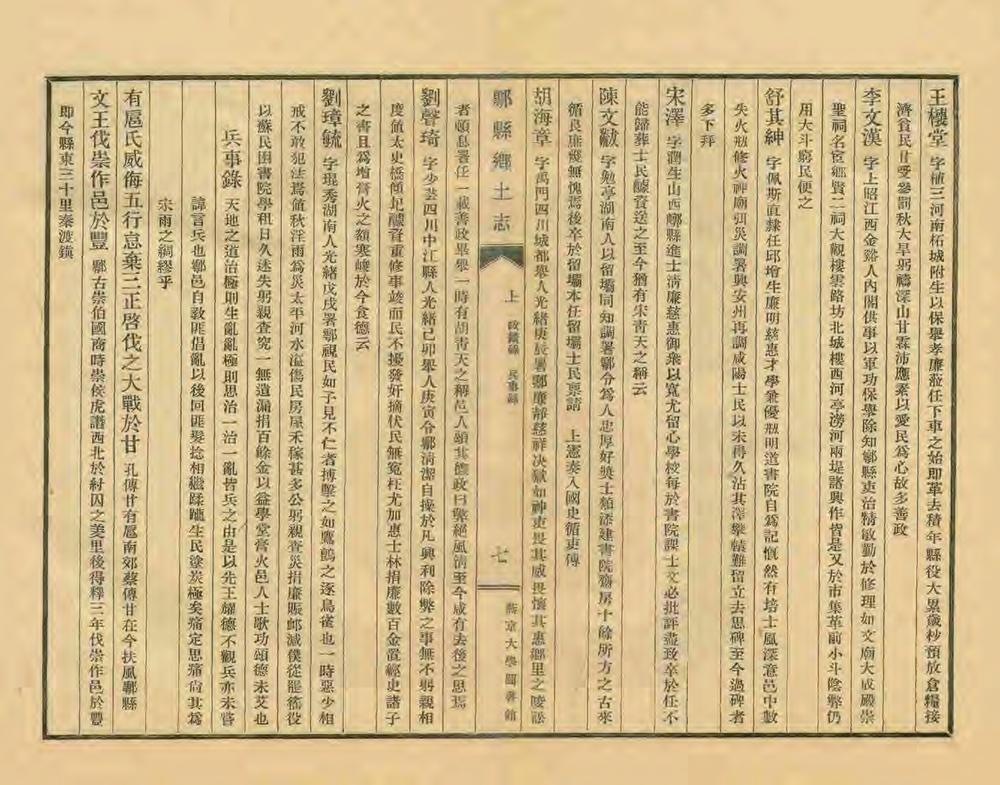 王樓堂 字植三河南柘城附生以保舉孝廉蒞任下車之始即革去積年縣役大累歲杪預放倉糧接
濟貧民甘受參罰秋大旱躬禱深山甘霖沛應素以愛民為心故多善政
李文漢 字上昭江西金谿人內閣供事以軍功保舉除知鄠縣吏治精敏勤於修理如文廟大成殿崇
聖祠名宦鄉賢二祠大觀樓雲路坊北城樓西河亭澇河兩堤諸興作皆是又於市集革前小斗陰弊仍
用大斗窮民便之
舒其紳 字佩斯直隸任邱增生廉明慈惠才學兼優剏明道書院自為記慨然有培士風深意邑中數
失火剏修火神廟弭災調署興安州再調咸陽士民以未得久沾其澤攀轅難留立去思碑至今過碑者
多下拜
宋澤 字潤生山西鄉縣進士清廉慈惠御衆以寬尤留心學校每於書院課士文必批評盡致卒於任不
能歸葬士民醵資送之至今猶有宋青天之稱云
陳文黻 字勉亭湖南人以留壩同知調署鄠令為人忠厚好獎士類添建書院齋房十餘所方之古來
循良庶幾無愧焉後卒於留壩本任留壩士民禀請 上憲奏入國史循吏傳
胡海章 字禹門四川城都舉人光緒庚辰署鄠廉靜慈祥決獄如神吏畏其威民懷其惠鄉里之凌訟
鄠縣鄉土志 上 政績錄 兵事錄 七 燕京大學圖書館
者頓息署任一載善政畢舉一時有胡青天之稱邑人頌其德政曰弊絕風清至今咸有去後之思焉
劉聲琦 字少芸四川中江縣人光緒己卯舉人庚寅令鄠清潔自操於凡興利除弊之事無不躬親相
度倣太史橋傾圮醵資重修事竣而民不擾發奸摘伏民無冤枉尤加惠士林捐廉數百金置經史諸子
之書且為增膏火之額寒畯於今食德云
劉璋毓 字琨秀湖南人光緒戊戌署鄠視民如子見不仁者搏擊之如鷹鸇之逐鳥雀也一時惡少相
戒不敢犯法焉値秋淫雨為災太平河水溢傷民房屋禾稼甚多公躬親查災捐廉賑卹減僕從罷徭役
以蘇民困書院學租日久迷失躬親查究一無遺漏捐百餘金以益學堂膏火邑人士歌功頌德未艾也
兵事錄 天地之道治極則生亂亂極則思治一治一亂皆兵之由是以先王耀德不觀兵亦未嘗
諱言兵也鄠邑自教匪倡亂以後回匪髮捻相繼蹂躪生民塗炭極矣痛定思痛尚其為
未雨之綢繆乎
有扈氏威侮五行怠棄三正啓伐之大戰於甘 孔傳甘有扈南郊蔡傳甘在今扶風鄠縣
文王伐崇作邑於豐 鄠古崇伯國商時崇侯虎譖西北於紂囚之羑里後得釋三年伐崇作邑於豐
即今縣東三十里秦渡鎮